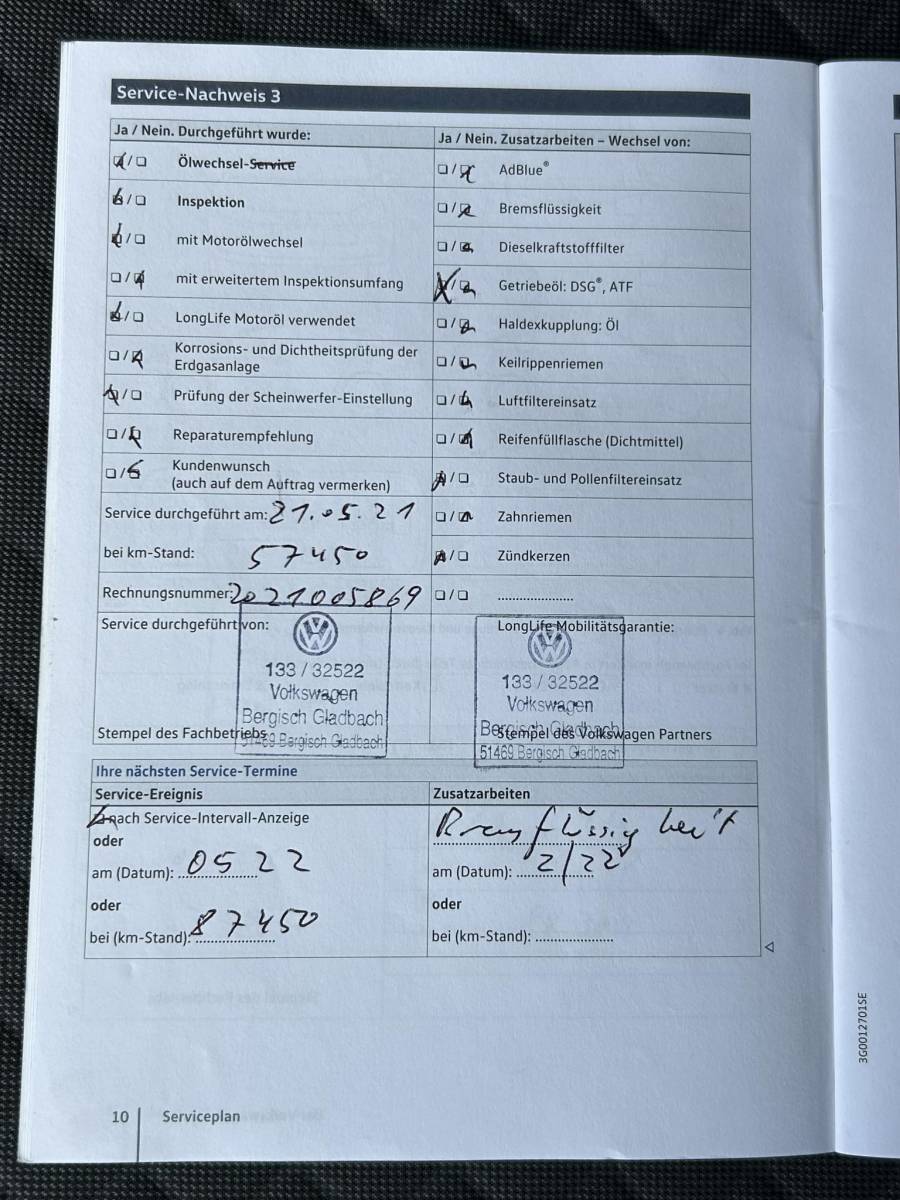 Service-Nachweis 3
Ja / Nein. Durchgeführt wurde:
Ölwechsel-Service
Inspektion
mit Motorölwechsel
mit erweitertem Inspektionsumfang
LongLife Motoröl verwendet
Korrosions- und Dichtheitsprüfung der
Erdgasanlage
Prüfung der Scheinwerfer-Einstellung
Reparaturempfehlung
Kundenwunsch
(auch auf dem Auftrag vermerken)
Service durchgeführt am: 21.05.21
bei km-Stand: 57450
Rechnungsnummer: 2021005869
Ja / Nein. Zusatzarbeiten – Wechsel von:
AdBlue®
Bremsflüssigkeit
Dieselkraftstofffilter
Getriebeöl: DSG®, ATF
Haldexkupplung: Öl
Keilrippenriemen
Luftfiltereinsatz
Reifenfüllflasche (Dichtmittel)
Staub- und Pollenfiltereinsatz
Zahnriemen
Zündkerzen
Service durchgeführt von:
133 / 32522
Volkswagen
Bergisch Gladbach
51469 Bergisch Gladbach
Stempel des Fachbetriebs
LongLife Mobilitätsgarantie:
133 / 32522
Volkswagen
Bergisch Gladbach
51469 Bergisch Gladbach
Stempel des Volkswagen Partners
Ihre nächsten Service-Termine
Service-Ereignis
nach Service-Intervall-Anzeige
oder
am (Datum): 05 22
oder
bei (km-Stand): 87450
Zusatzarbeiten
am (Datum): 2/22
oder
bei (km-Stand):
3G0012701SE
10 Serviceplan